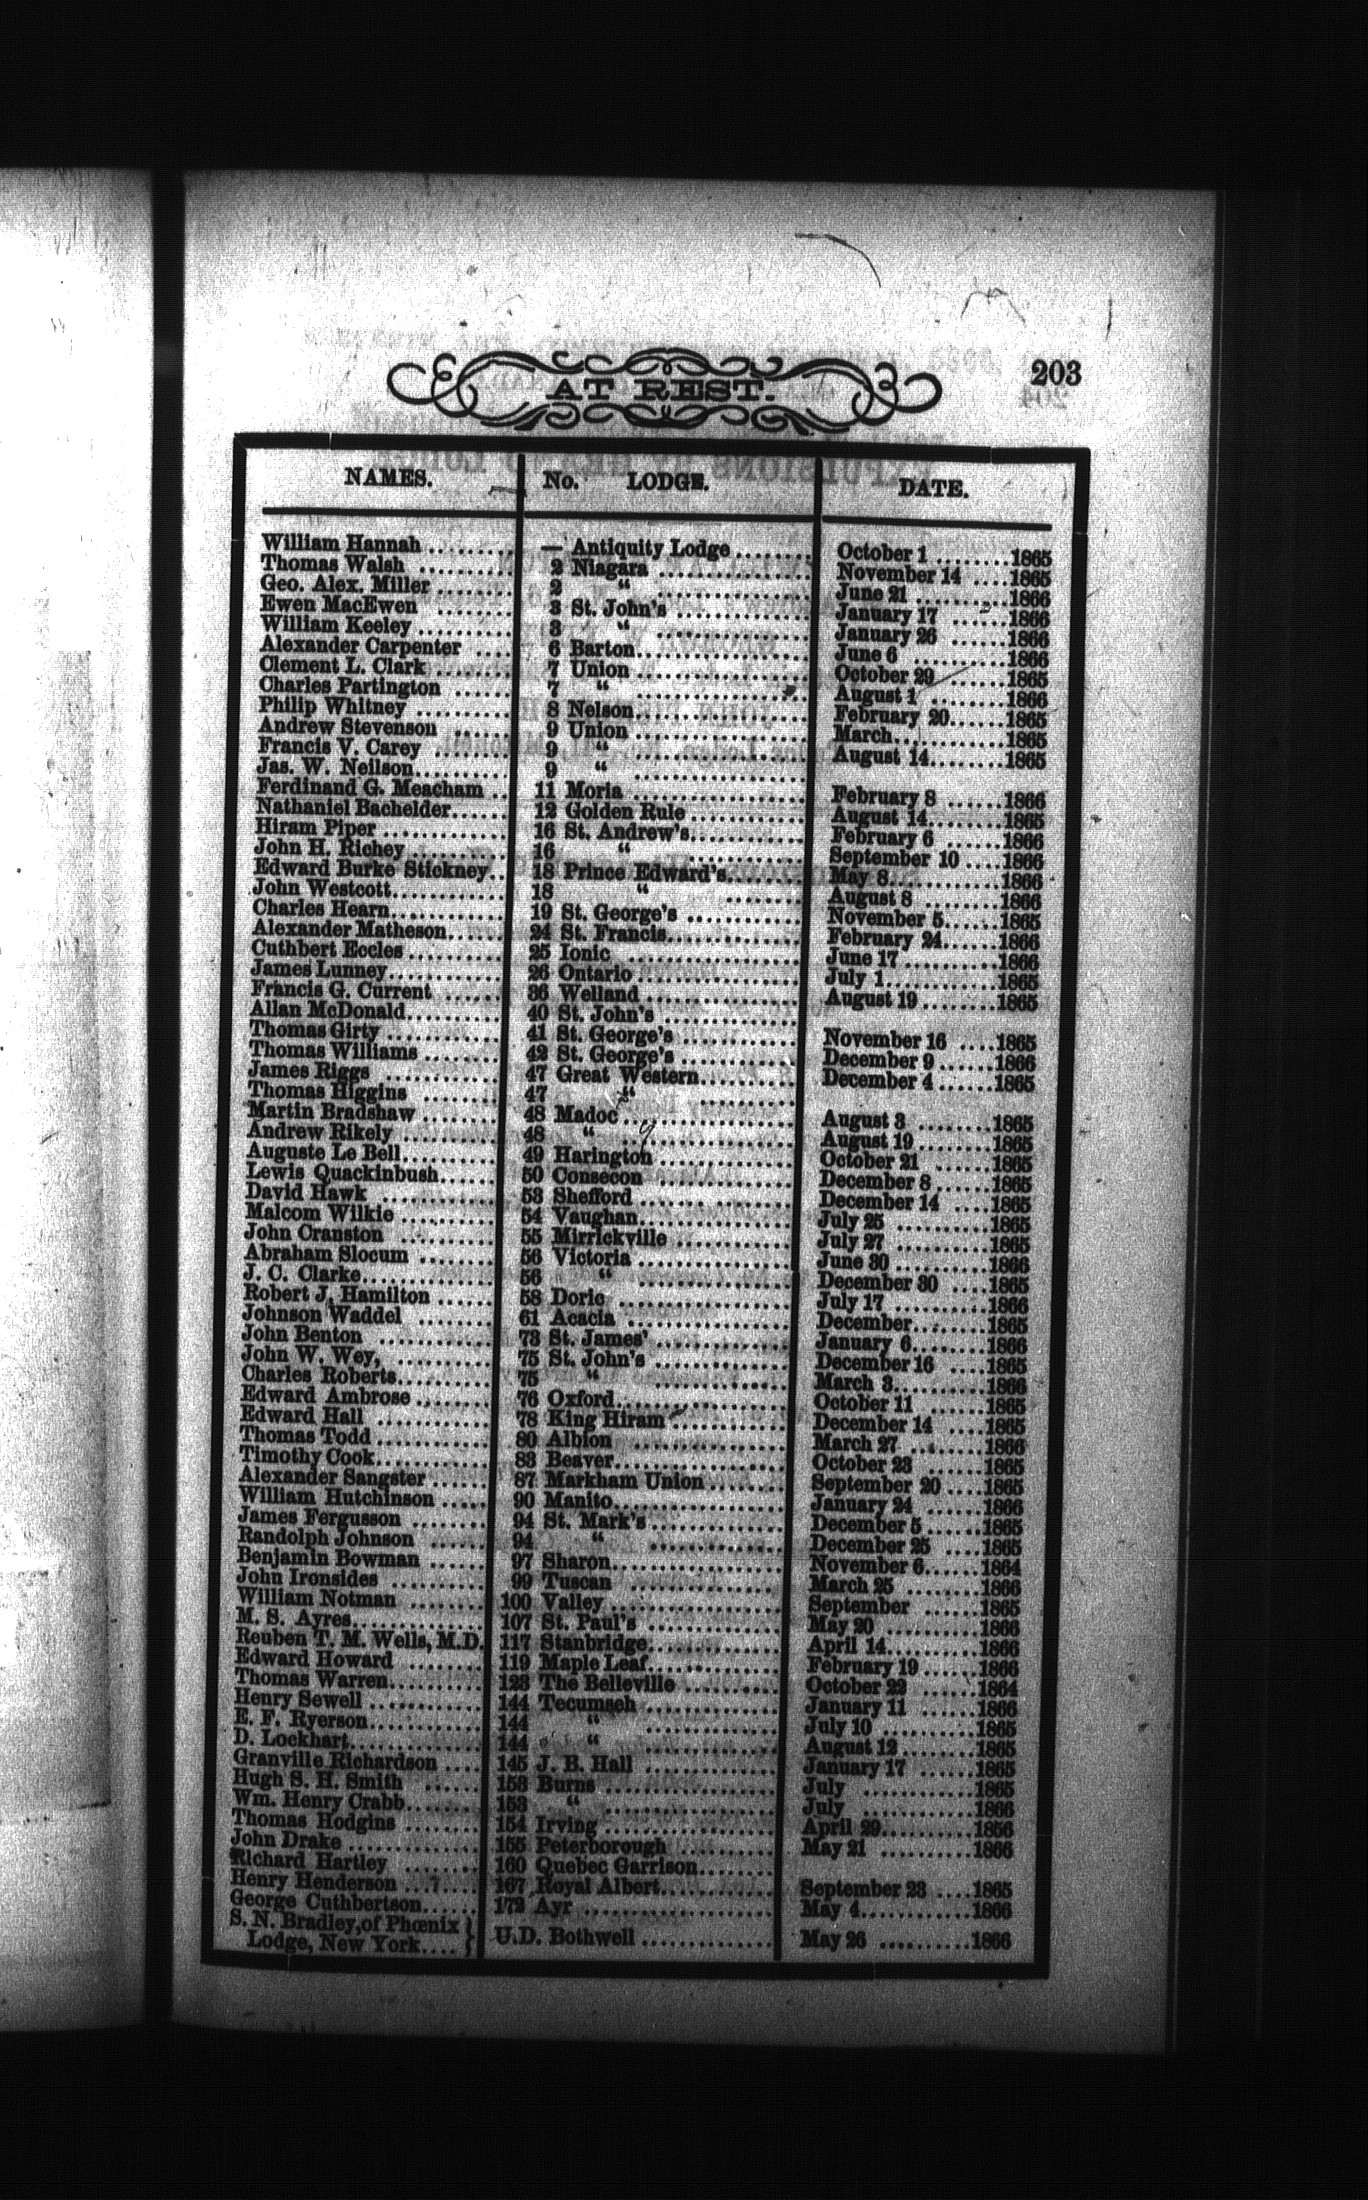 203
AT REST.
NAMES. No. LODGE. DATE.
William Hannah ........ — Antiquity Lodge ........ October 1 ........ 1865
Thomas Walsh ........ 2 Niagara ........ November 14 .... 1865
Geo. Alex. Miller ........ 2 " ........ June 21 ........ 1866
Ewen MacEwen ........ 3 St. John's ........ January 17 ...... 1866
William Keeley ........ 3 " ........ January 26 ...... 1866
Alexander Carpenter .... 6 Barton ........ June 6 ........ 1866
Clement L. Clark ........ 7 Union ........ October 29 ....... 1865
Charles Partington ...... 7 " ........ August 1 ........ 1866
Philip Whitney ........ 8 Nelson ........ February 20...... 1865
Andrew Stevenson ...... 9 Union ........ March........ 1865
Francis V. Carey ........ 9 " ........ August 14........ 1865
Jas. W. Neilson........ 9 " ........
Ferdinand G. Meacham .. 11 Moria ........ February 8 ...... 1866
Nathaniel Bachelder...... 12 Golden Rule ........ August 14........ 1865
Hiram Piper ........ 16 St. Andrew's........ February 6 ...... 1866
John H. Richey ........ 16 " ........ September 10 .... 1866
Edward Burke Stickney.. 18 Prince Edward's........ May 8........ 1866
John Westcott........ 18 " ........ August 8 ........ 1866
Charles Hearn........ 19 St. George's ........ November 5...... 1865
Alexander Matheson...... 24 St. Francis........ February 24...... 1866
Cuthbert Eccles ........ 25 Ionic ........ June 17 ........ 1866
James Lunney........ 26 Ontario ........ July 1........ 1865
Francis G. Current ...... 36 Welland ........ August 19 ........ 1865
Allan McDonald........ 40 St. John's ........
Thomas Girty ........ 41 St. George's ........ November 16 .... 1865
Thomas Williams ........ 42 St. George's ........ December 9 ...... 1866
James Riggs ........ 47 Great Western........ December 4 ...... 1865
Thomas Higgins ........ 47 " ........
Martin Bradshaw ........ 48 Madoc ........ August 3 ........ 1865
Andrew Rikely ........ 48 " ........ August 19 ........ 1865
Auguste Le Bell........ 49 Harington ........ October 21 ...... 1865
Lewis Quackinbush...... 50 Consecon ........ December 8 ...... 1865
David Hawk ........ 53 Shefford ........ December 14 .... 1865
Malcom Wilkie ........ 54 Vaughan........ July 25 ........ 1865
John Cranston ........ 55 Mirrickville ........ July 27 ........ 1865
Abraham Slocum ........ 56 Victoria ........ June 30 ........ 1866
J. C. Clarke........ 56 " ........ December 30 .... 1865
Robert J. Hamilton ...... 58 Doric ........ July 17 ........ 1866
Johnson Waddel ........ 61 Acacia ........ December........ 1865
John Benton ........ 73 St. James' ........ January 6........ 1866
John W. Wey, ........ 75 St. John's ........ December 16 .... 1865
Charles Roberts........ 75 " ........ March 3........ 1866
Edward Ambrose ........ 76 Oxford........ October 11 ...... 1865
Edward Hall ........ 78 King Hiram ........ December 14 .... 1865
Thomas Todd ........ 80 Albion ........ March 27 ........ 1866
Timothy Cook........ 83 Beaver........ October 23 ...... 1865
Alexander Sangster ...... 87 Markham Union ........ September 20 .... 1865
William Hutchinson ..... 90 Manito........ January 24 ...... 1866
James Fergusson ........ 94 St. Mark's ........ December 5 ...... 1865
Randolph Johnson ...... 94 " ........ December 25 .... 1865
Benjamin Bowman ...... 97 Sharon........ November 6...... 1864
John Ironsides ........ 99 Tuscan ........ March 25 ........ 1866
William Notman ........ 100 Valley ........ September ...... 1865
M. S. Ayres........ 107 St. Paul's ........ May 20 ........ 1866
Reuben T. M. Wells, M.D. 117 Stanbridge........ April 14........ 1866
Edward Howard ........ 119 Maple Leaf........ February 19 ..... 1866
Thomas Warren........ 123 The Belleville ........ October 22 ...... 1864
Henry Sewell ........ 144 Tecumseh ........ January 11 ...... 1866
E. F. Ryerson........ 144 " ........ July 10 ........ 1865
D. Lockhart........ 144 " ........ August 12 ........ 1865
Granville Richardson .... 145 J. B. Hall ........ January 17 ...... 1865
Hugh S. H. Smith ...... 153 Burns ........ July ........ 1865
Wm. Henry Crabb........ 153 " ........ July ........ 1866
Thomas Hodgins ........ 154 Irving ........ April 29........ 1856
John Drake ........ 155 Peterborough ........ May 21 ........ 1866
Richard Hartley ........ 160 Quebec Garrison........
Henry Henderson ........ 167 Royal Albert........ September 23 .... 1865
George Cuthbertson...... 172 Ayr ........ May 4........ 1866
S. N. Bradley, of Phœnix
Lodge, New York.... } U.D. Bothwell ........ May 26 ........ 1866